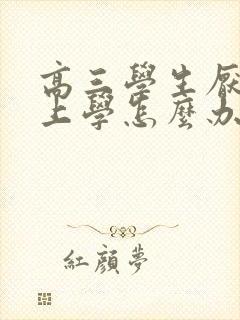 高三學生厭
上學怎麼办
紅顏夢